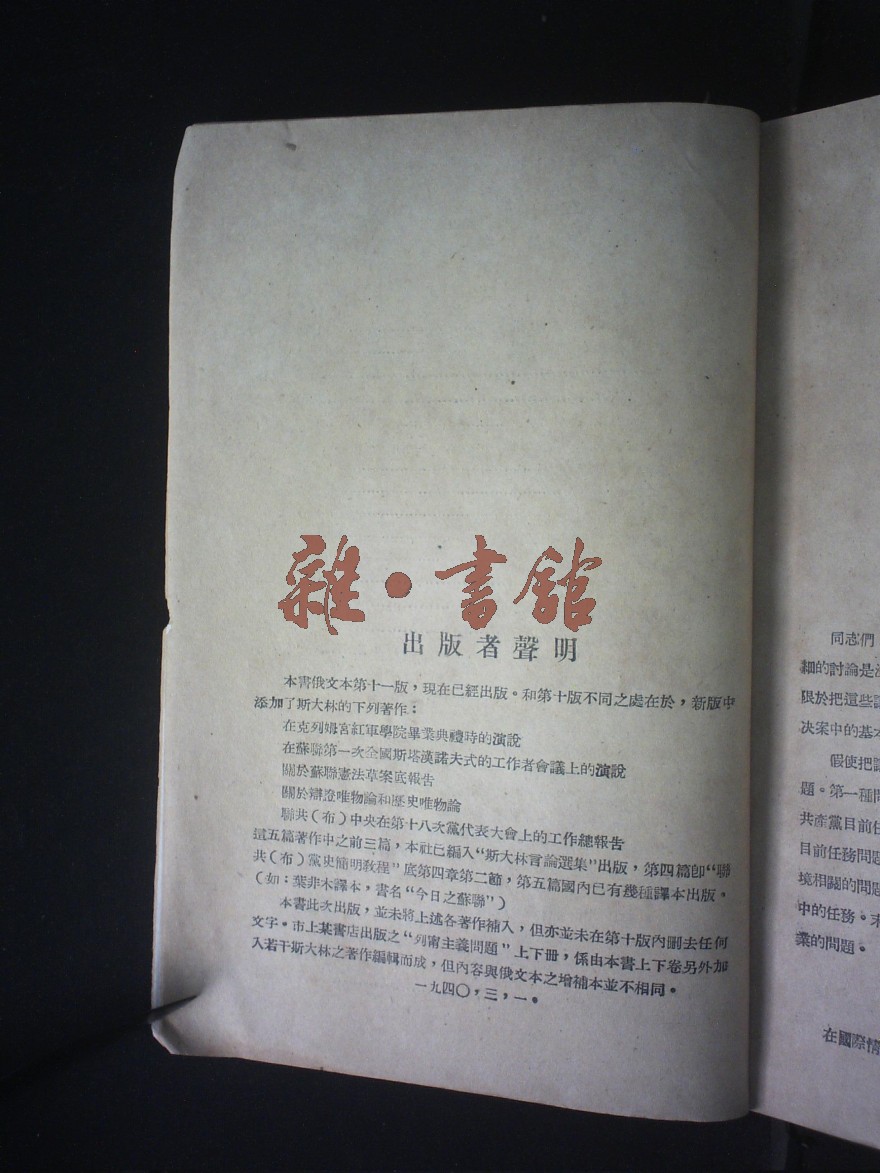 雜·書舘
出版者聲明
本書俄文本第十一版，現在已經出版。和第十版不同之處在於，新版中
添加了斯大林的下列著作：
在克列姆宮紅軍學院畢業典禮時的演說
在蘇聯第一次全國斯塔漢諾夫式的工作者會議上的演說
關於蘇聯憲法草案底報告
關於辯證唯物論和歷史唯物論
聯共（布）中央在第十八次黨代表大會上的工作總報告
這五篇著作中之前三篇，本社已編入“斯大林言論選集”出版，第四篇卽“聯
共（布）黨史簡明敎程”底第四章第二節，第五篇國內已有幾種譯本出版。
（如：葉非木譯本，書名“今日之蘇聯”）
本書此次出版，並未將上述各著作補入，但亦並未在第十版內刪去任何
文字。市上某書店出版之“列甯主義問題”上下冊，係由本書上下卷另外加
入若干斯大林之著作編輯而成，但內容與俄文本之增補本並不相同。
一九四〇，三，一。
同志們
細的討論是
限於把這些
決案中的基本
假使把
題。第一種
共產黨目前任
目前任務問題
境相關的問題
中的任務。
業的問題。
在國際情